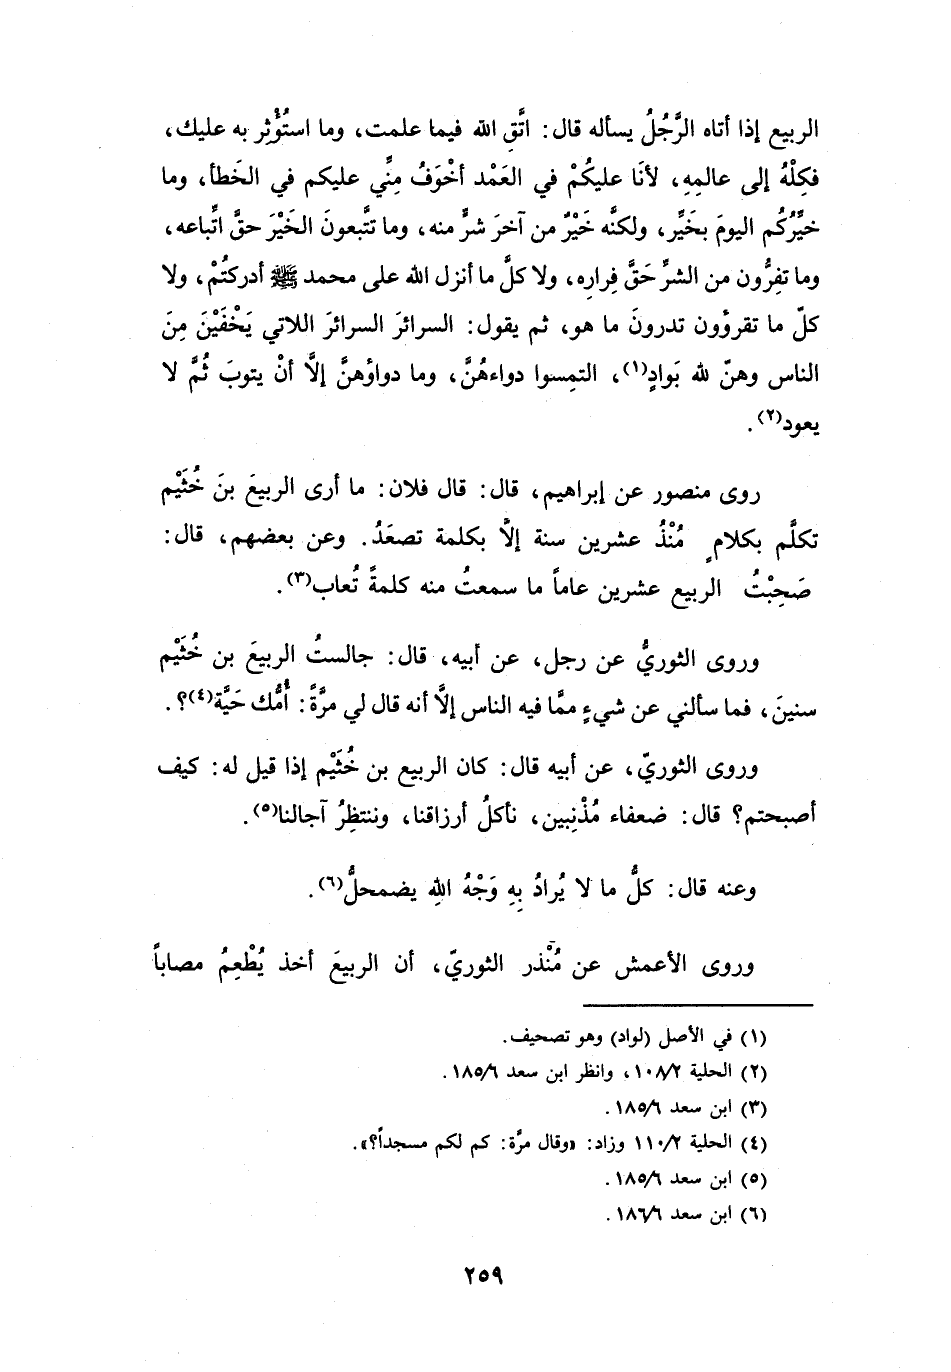 الربيع إذا أتاه الرَّجُلُ يسأله قال: اتَّقِ الله فيما علمت، وما استُؤْثِر به عليك،
فكِلْهُ إلى عالمِهِ، لأنَا عليكُمْ في العَمْد أخْوَفُ مِنِّي عليكم في الخَطأ، وما
خيِّرُكُم اليومَ بخَيِّر، ولكنَّه خَيْرٌ من آخرَ شرٍّ منه، وما تتَّبعونَ الخَيْرَ حقَّ اتِّباعه،
وما تفِرُّون من الشرِّ حَقَّ فِراره، ولا كلَّ ما أنزل الله على محمد ﷺ أدركتُمْ، ولا
كلّ ما تقرؤون تدرونَ ما هو، ثم يقول: السرائرَ السرائرَ اللاتي يَخْفَيْنَ مِنَ
الناس وهنّ لله بَوادٍ(١)، التمِسوا دواءهُنَّ، وما دواؤهنَّ إلَّا أنْ يتوبَ ثُمَّ لا
يعود(٢).
روى منصور عن إبراهيم، قال: قال فلان: ما أرى الربيعَ بنَ خُثَيْم
تكلَّم بكلامٍ مُنْذُ عشرين سنة إلَّا بكلمة تصعَدُ. وعن بعضهم، قال:
صَحِبْتُ الربيع عشرين عاماً ما سمعتُ منه كلمةً تُعاب(٣).
وروى الثوريُّ عن رجل، عن أبيه، قال: جالستُ الربيعَ بن خُثَيْم
سنينَ، فما سألني عن شيءٍ ممَّا فيه الناس إلَّا أنه قال لي مرَّةً: أُمُّك حَيَّة(٤)؟.
وروى الثوريّ، عن أبيه قال: كان الربيع بن خُثَيْم إذا قيل له: كيف
أصبحتم؟ قال: ضعفاء مُذْنِبين، نأكلُ أرزاقنا، وننتظِرُ آجالنا(٥).
وعنه قال: كلُّ ما لا يُرادُ بِهِ وَجْهُ اللهِ يضمحلُّ(٦).
وروى الأعمش عن مُنْذر الثوريّ، أن الربيعَ أخذ يُطْعِمُ مصاباً
(١) في الأصل (لواد) وهو تصحيف.
(٢) الحلية ١٠٨/٢، وانظر ابن سعد ١٨٥/٦.
(٣) ابن سعد ١٨٥/٦.
(٤) الحلية ١١٠/٢ وزاد: «وقال مرَّة: كم لكم مسجداً؟».
(٥) ابن سعد ١٨٥/٦.
(٦) ابن سعد ١٨٦/٦.
٢٥٩